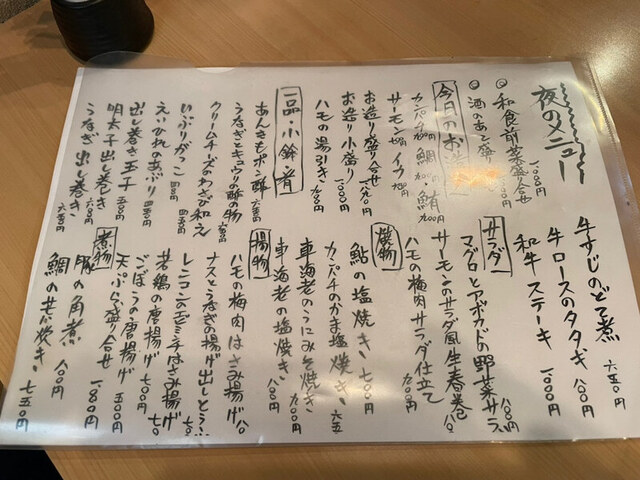 夜のメニュー
○和食前菜盛り合せ 一、〇〇〇円
○酒のあと盛り
今日のお造り
カンパチ 鯛 鮪 九〇〇円
サーモン イカ
お造り盛り合せ
お造り小盛り 一、〇〇〇円
ハモの湯引き 九〇〇円
一品・小鉢・肴
あんきもポン酢 六五〇円
うなぎとキュウリの酢の物
クリームチーズのわさび和え
いぶりがっこ 四〇〇円
えいひれのあぶり 四五〇円
出し巻き玉子 五〇〇円
明太子出し巻き 六〇〇円
うなぎ出し巻き 六五〇円
牛すじのどて煮 六五〇円
牛ロースのタタキ 八〇〇円
和牛ステーキ 一、〇〇〇円
サラダ
マグロとアボカドの野菜サラダ 八〇〇円
サーモンのサラダ風生春巻
ハモの梅肉サラダ仕立て 九〇〇円
焼物
鮎の塩焼き 七〇〇円
カンパチのかま塩焼き 六五
車海老のうにみそ焼き 九〇〇円
車海老の塩焼き 八〇〇円
揚物
ハモの梅肉はさみ揚げ
ナスとうなぎの揚げ出しとうふ
レンコンのエビミンチはさみ揚げ
若鶏の唐揚げ 七〇〇円
ごぼうの唐揚げ 五〇〇円
天ぷら盛り合せ 一、八〇〇円
煮物
豚の角煮 八〇〇円
鯛のあら炊き 七五〇円